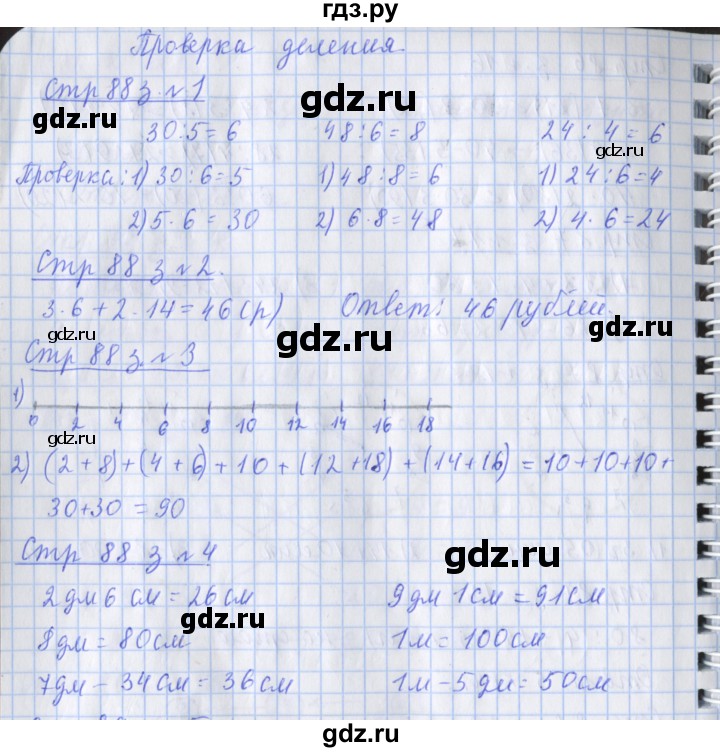 гдз.ру
Проверка деления.
Стр 88 з. №1
30:5=6 48:6=8 24:4=6
Проверка: 1) 30:6=5 1) 48:8=6 1) 24:6=4
2) 5·6=30 2) 6·8=48 2) 4·6=24
Стр 88 з №2.
3·6+2·14=46(р) Ответ: 46 рублей.
Стр 88 з. №3
1)
0 2 4 6 8 10 12 14 16 18
2) (2+8)+(4+6)+10+(12+18)+(14+16)=10+10+10+
30+30=90
Стр 88 з №4
2дм 6 см=26см 9дм 1см=91см
8дм=80см 1м=100см
7дм-34см=36см 1м-5дм=50см
gdz.ru
gdz.ru
gdz.ru
gdz.ru
gdz.ru
gdz.ru
gdz.ru
gdz.ru
gdz.ru
gdz.ru
gdz.ru